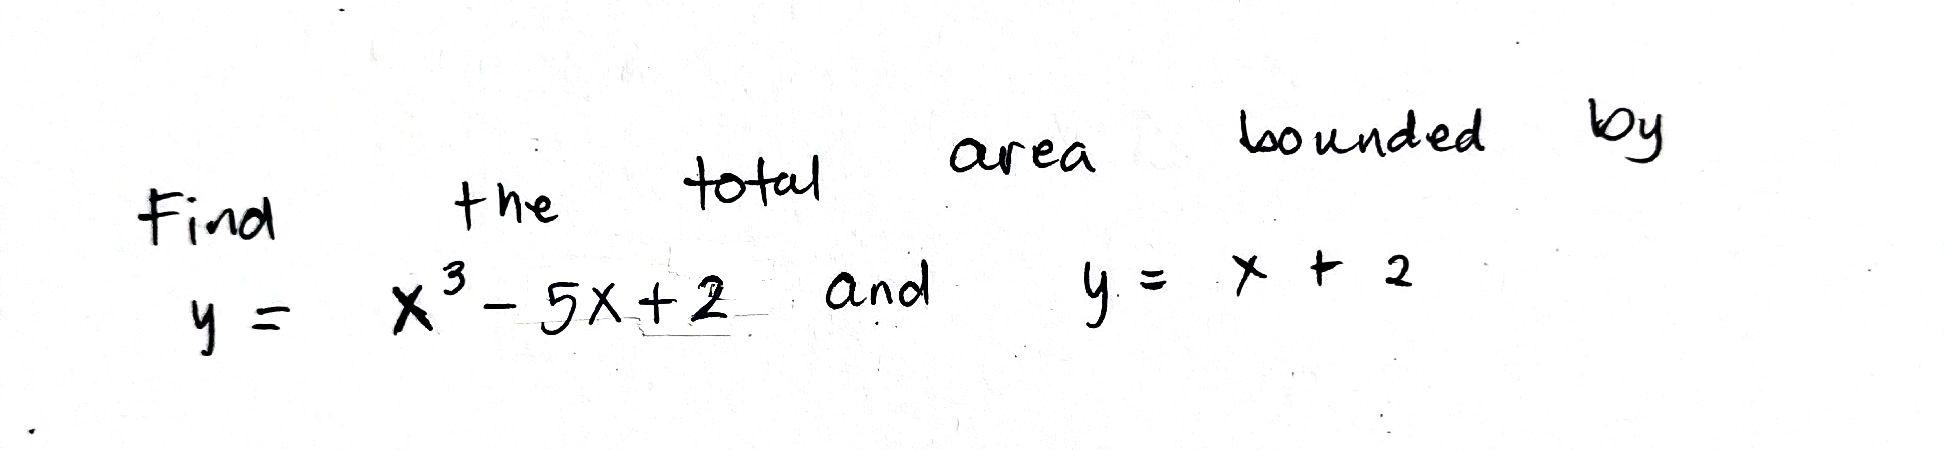 Find the total area bounded by
y = x³ - 5x + 2 and y = x + 2